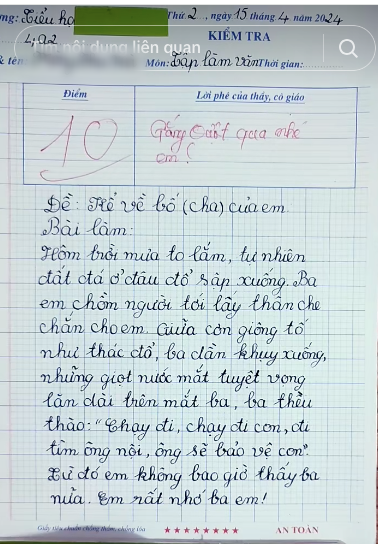 ng: Tiểu họ
Thứ 2.., ngày 15 tháng 4 năm 2024
4:a2
KIỂM TRA
nội dung liên quan
& tên
Môn: Tập làm văn Thời gian:
Điểm
Lời phê của thầy, cô giáo
10
Cố gắng
qua nhé
em!
Đề: Kể về bố (cha) của em
Bài làm:
Hôm trời mưa to lắm, tự nhiên
đất đá ở đâu đổ sập xuống. Ba
em chồm người tới lấy thân che
chắn cho em. Cưa còn giông tố
như thác đổ, ba dần khuỵ xuống,
những giọt nước mắt tuyệt vọng
lăn dài trên mắt ba, ba thều
thào: "Chạy đi, chạy đi con, đi
tìm ông nội, ông sẽ bảo vệ con".
Từ đó em không bao giờ thấy ba
nữa. Em rất nhớ ba em!
Giấy tiêu chuẩn chống thấm, chống lóa
★★★★★★★★
AN TOÀN